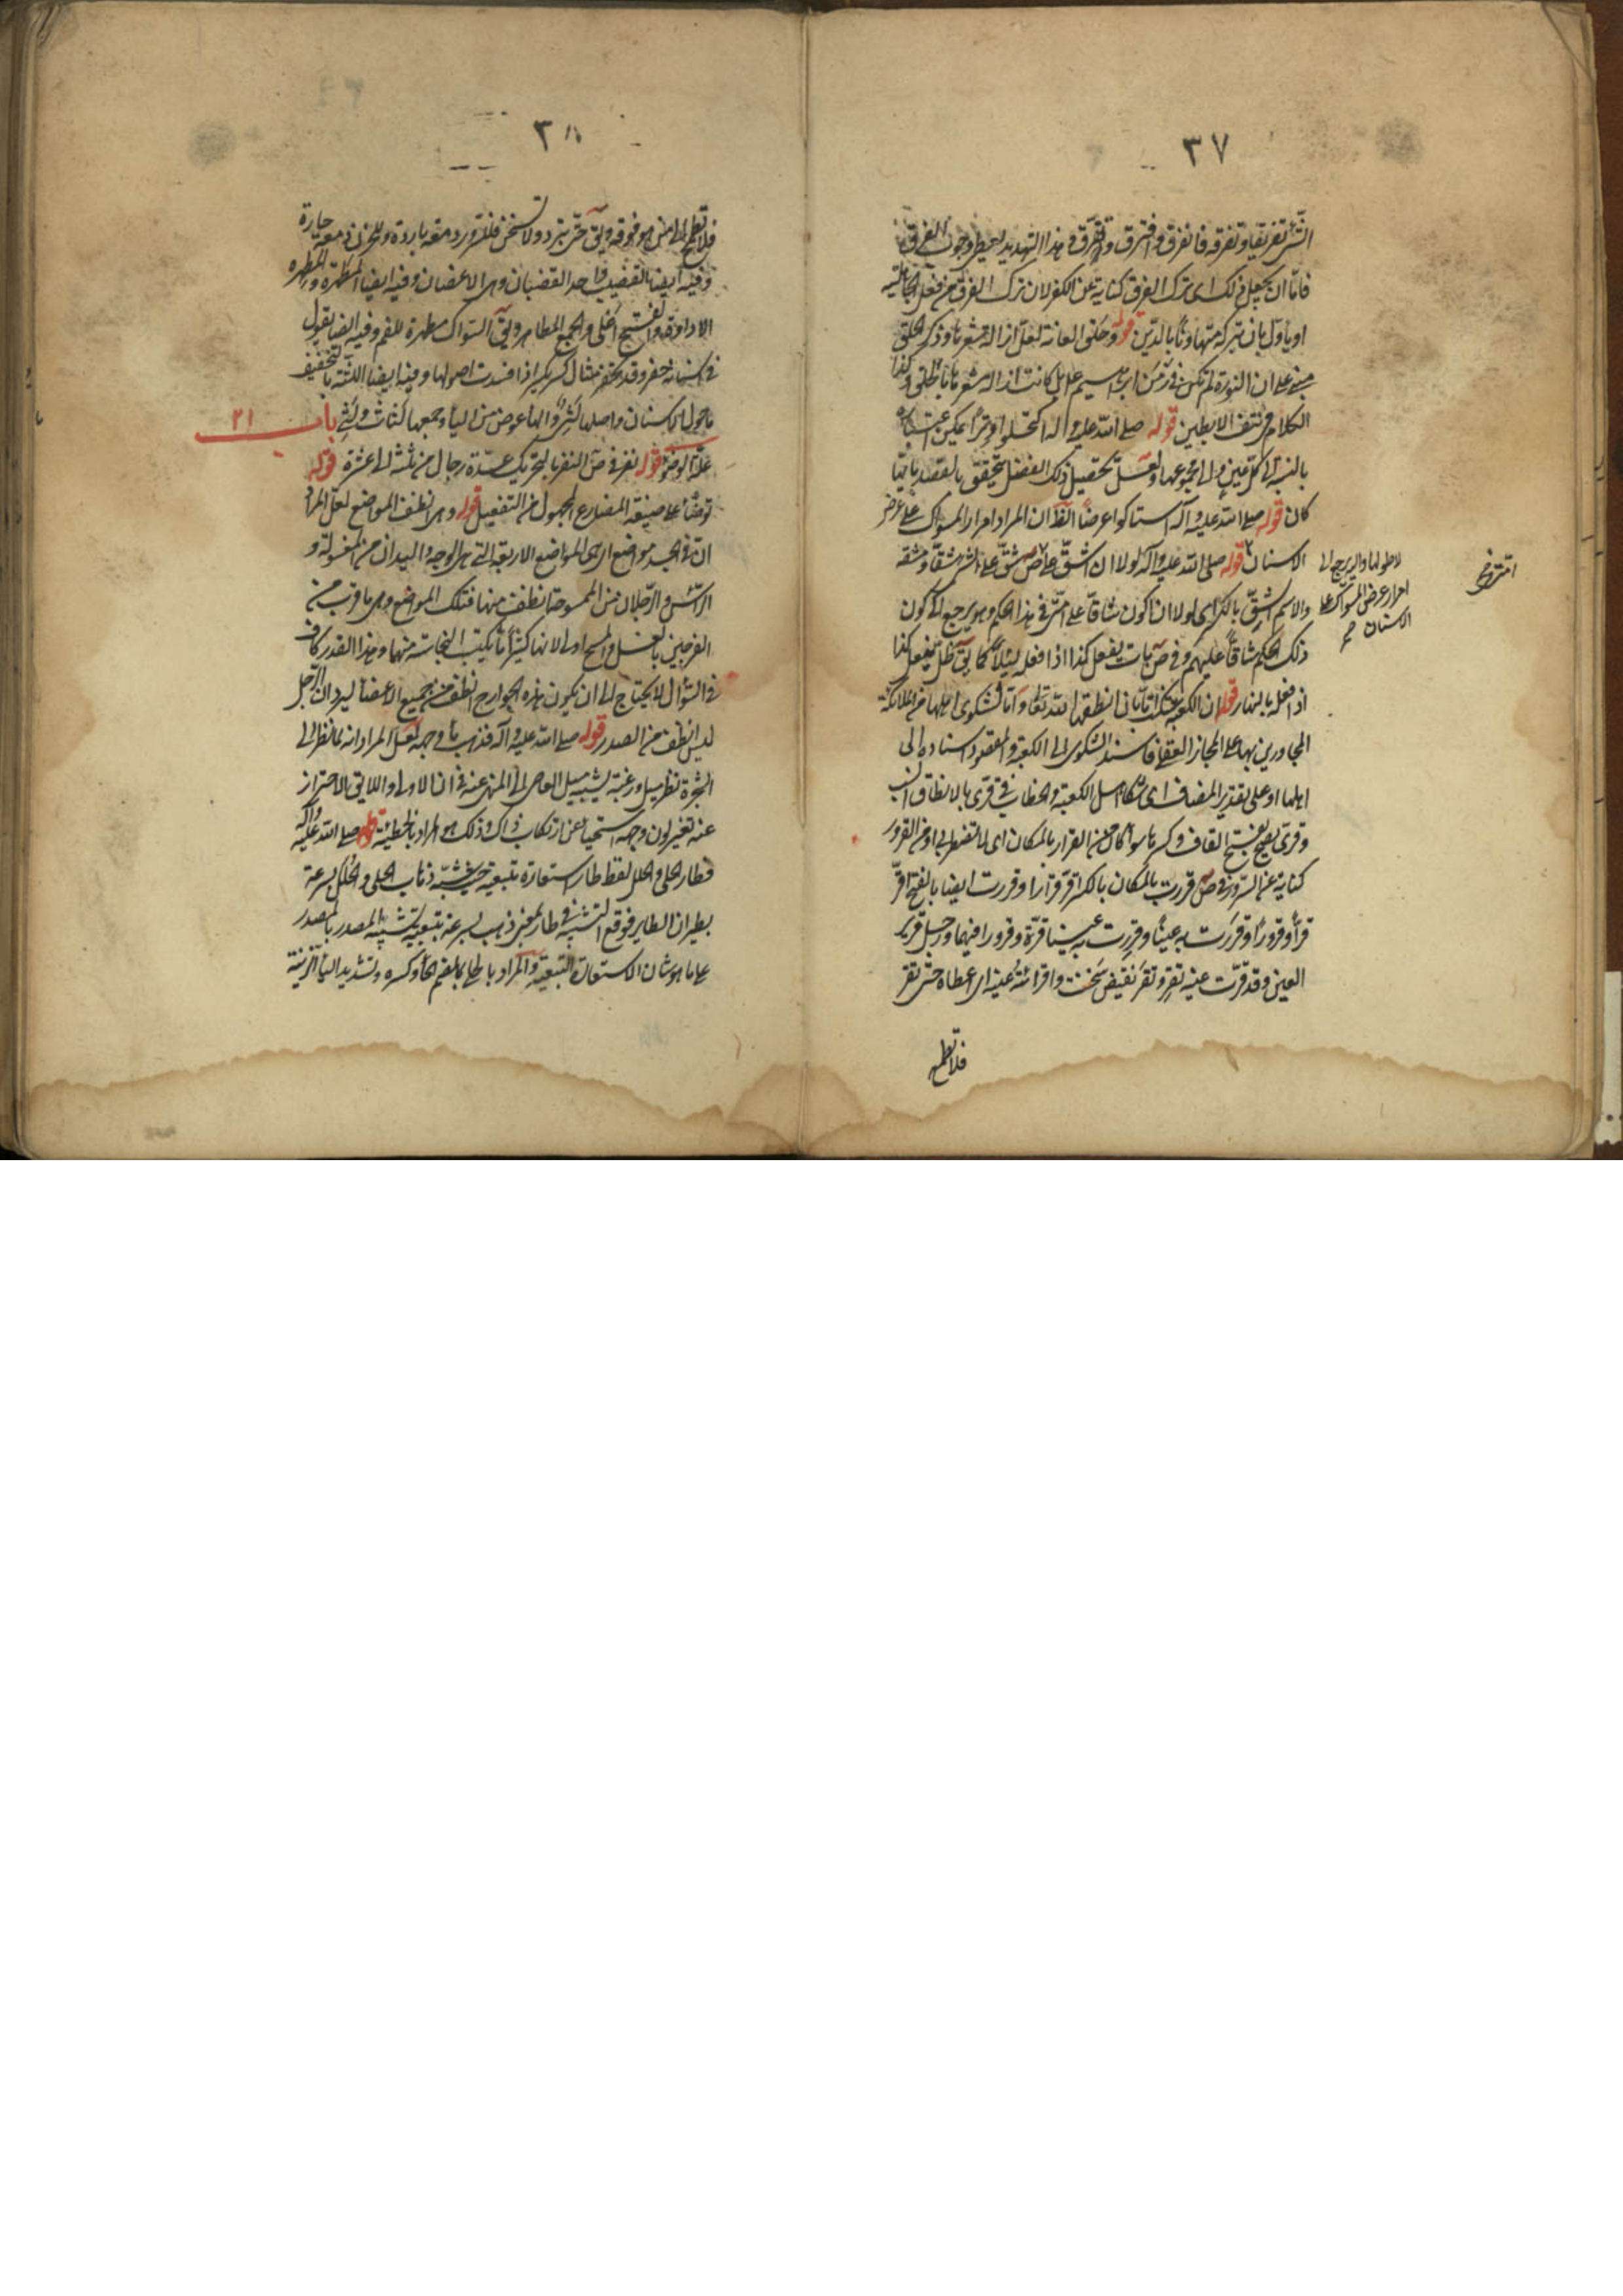 ٣٧
الشئ تفريقا وتفرقه فانفرق وافترق وتفرق وهذا التهديد يعطى وجوب الفرق
فاما ان يجعل ذلك اى ترك الفرق كناية عن الكفر لان ترك الفرق من فعل الجاهلية
او ياول بان يتركه متهاونا بالدين قوله وحلق العانة لعل ازالة شعرها وذكر الحلق
مبنى على ان النورة لم تكن فى زمن ابرهيم عليه بل كانت ازالة شعرها بالحلق وكذا
الكلام فى نتف الابطين قوله صلى الله عليه واله اكتحلوا وترا يمكن اعتباره
بالنسبة الى كل عين والى مجموعهما ولعل تحصيل ذلك الفضل يتحقق بالقصد بايها
كان قوله صلى الله عليه وآله استاكوا عرضا الظ ان المراد امرار المسواك على عرض
الاسنان قوله صلى الله عليه وآله لولا ان اشق على ص شق على الشئ يشق شقا ومشقة
والاسم الشق بالكسر اى لولا ان اكون شاقا على امتى فى هذا الحكم وهو يرجع الى كون
ذلك الحكم شاقا عليهم وفى ص بات يفعل كذا اذا فعله ليلا كما يق ظل يفعل كذا
اذا فعله بالنهار قوله ان الكعبة شكت اما بان انطقها الله تعالى واما لشكوى اهلها من الملائكة
المجاورين بها على المجاز العقلى فاسند الشكوى الى الكعبة والمقصود اسناده الى
اهلها او على تقدير المضاف اى شكا اهل الكعبة والخطاب فى قرى بالانطاق انسب
وقرى يصح بفتح القاف وكسرها سواء كان من القرار بالمكان اى لا تضطربى او من القرور
كناية عن السرور وفى ص قررت بالمكان بالكسر اقر قرارا وقررت ايضا بالفتح اقر
قرا وقرورا وقررت به عينا وقررت به عينا قرة وقرورا فيهما ورجل قرير
العين وقد قرت عينه تقر وتقر نقيض سخنت واقر الله عينه اى اعطاه حتى تقر
فلا تطمح
لا طولها والا يرجع الى
امرار عرض المسواك على
الاسنان صح
٣٨
فلا تطمح الى من هو فوقه ويق حتى تبرد ولا تسخن فللسرور دمعة باردة وللحزن دمعة حارة
وفيه ايضا القضيب واحد القضبان وهى الاغصان وفيه ايضا المطهرة والمطهرة
الاداوة والفتح اعلى والجمع المطاهر ويق السواك مطهرة للفم وفيه ايضا يقول
فى اسنانه حفر وقد حفر مثال كسر يكسر اذا فسدت اصولها وفيه ايضا اللثة بالتخفيف
ما حول الاسنان واصلها لثى والهاء عوض من الياء وجمعها لثات ولثى باب ٢١
علة الوضوء قوله نفر فى ص النفر بالتحريك عدة رجال من ثلثة الى عشرة قوله
توضأ على صيغة المضارع المجهول من التفعيل قوله وهى انظف المواضع لعل المراد
ان فى الجسد مواضع ارى المواضع الاربعة التى هى الوجه واليدان من المغسولة و
الرأس والرجلان من الممسوحة انظف منها فتلك المواضع وهى ما قرب من
الفرجين بالغسل والمسح اولى لانها كثيرا ما تكتسب النجاسة منهما وهذا القدر كاف
فى السؤال لا يحتاج الى ان يكون هذه الجوارح انظف من جميع الاعضاء ليرد ان الرجل
ليس انظف من الصدر قوله صلى الله عليه وآله فذهب ماء وجهه لعل المراد انه لما نظر الى
الشجرة نظر ميل ورغبة يشبه ميل العاصى الى المنهى عنه فى ان الاولى واللايق الاحتراز
عنه تغير لون وجهه استحياء عن ارتكاب ذاك وذلك هو المراد بالخطيئة قوله صلى الله عليه وآله
فطار الحلى والحلل لفظ طار استعارة تبعية حيث شبه ذهاب الحلى والحلل بسرعة
بطيران الطاير فوقع التشبيه فى طار بمعنى ذهب بسرعة بتبعية تشبيه المصدر بالمصدر
على ما هو شان الاستعارة التبعية والمراد بالحلى بضم الحاء وكسره وتشديد الياء الزينة